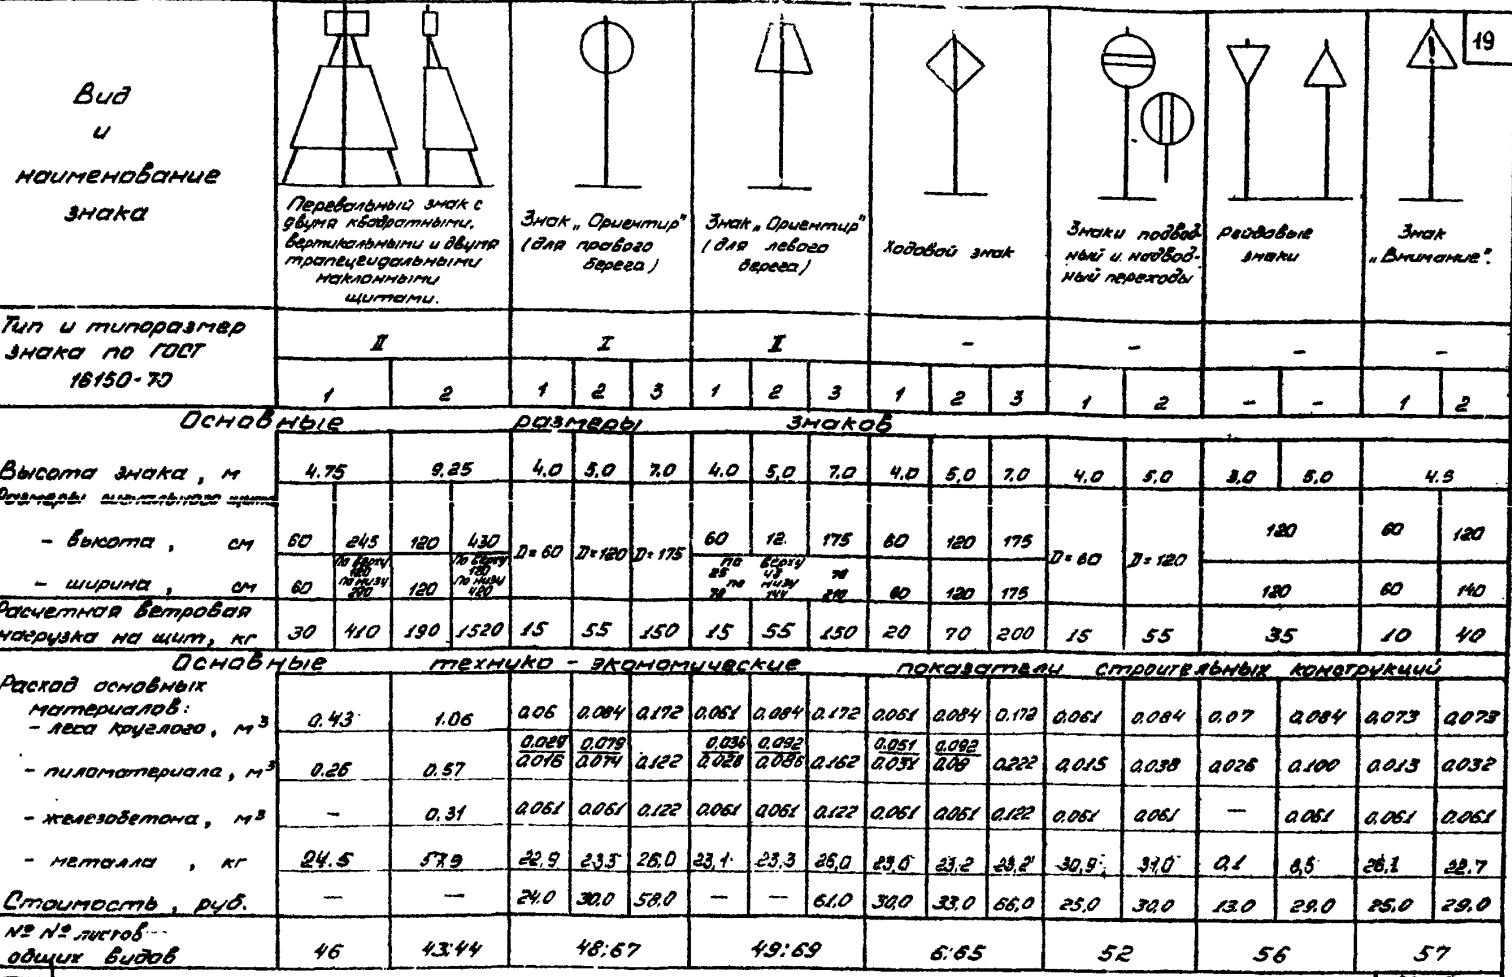 19
Вид
и
наименование
знака
Перевальный знак с
двумя квадратными,
вертикальными и двумя
трапецеидальными
наклонными
щитами.
Знак „Ориентир"
(для правого
берега)
Знак „Ориентир"
(для левого
берега)
Ходовой знак
Знаки подвод
ный и надвод-
ный переходы
рейдовые
знаки
Знак
„Внимание".
Тип и типоразмер
знака по ГОСТ
16150-70
II I II - - - -
1 2 1 2 3 1 2 3 1 2 3 1 2 - - 1 2
Основные размеры знаков
Высота знака, м 4.75 9.25 4.0 5.0 7.0 4.0 5,0 7.0 4,0 5,0 7,0 4,0 5,0 3,0 5,0 4.5
Размеры сигнального щита
- высота, см 60 245 120 430 D=60 D=120 D=175 60 12. 175 60 120 175 D=60 D=120 120 60 120
- ширина, см 60 по верху 120 по низу 290 120 по верху 180 по низу 420 по верху 25 43 70 по низу 70 144 210 60 120 175 120 60 140
Расчетная ветровая
нагрузка на щит, кг 30 410 190 1520 15 55 150 15 55 150 20 70 200 15 55 35 10 40
Основные технико-экономические показатели строительных конструкций
Расход основных
материалов:
- леса круглого, м³ 0.43 1.06 0.06 0.084 0.172 0.061 0.084 0.172 0.061 0.084 0.172 0.061 0.084 0.07 0.084 0.073 0.073
- пиломатериала, м³ 0.26 0.57 0.029/0.016 0.079/0.074 0.122 0.036/0.028 0.092/0.086 0.162 0.051/0.031 0.092/0.09 0.222 0.015 0.038 0.026 0.100 0.013 0.032
- железобетона, м³ - 0.31 0.061 0.061 0.122 0.061 0.061 0.122 0.061 0.061 0.122 0.061 0.061 - 0.061 0.061 0.061
- металла, кг 24.5 57.9 22,9 23,5 26,0 23,1 23,3 26,0 23,0 23,2 23,2 30,9 31,0 0,1 8,5 28,1 22.7
Стоимость, руб. - - 24.0 30.0 58.0 - - 61.0 30.0 33.0 66,0 25,0 30,0 13.0 29.0 25.0 29.0
№№ листов
общих видов 46 43:44 48;67 49;69 6:65 52 56 57